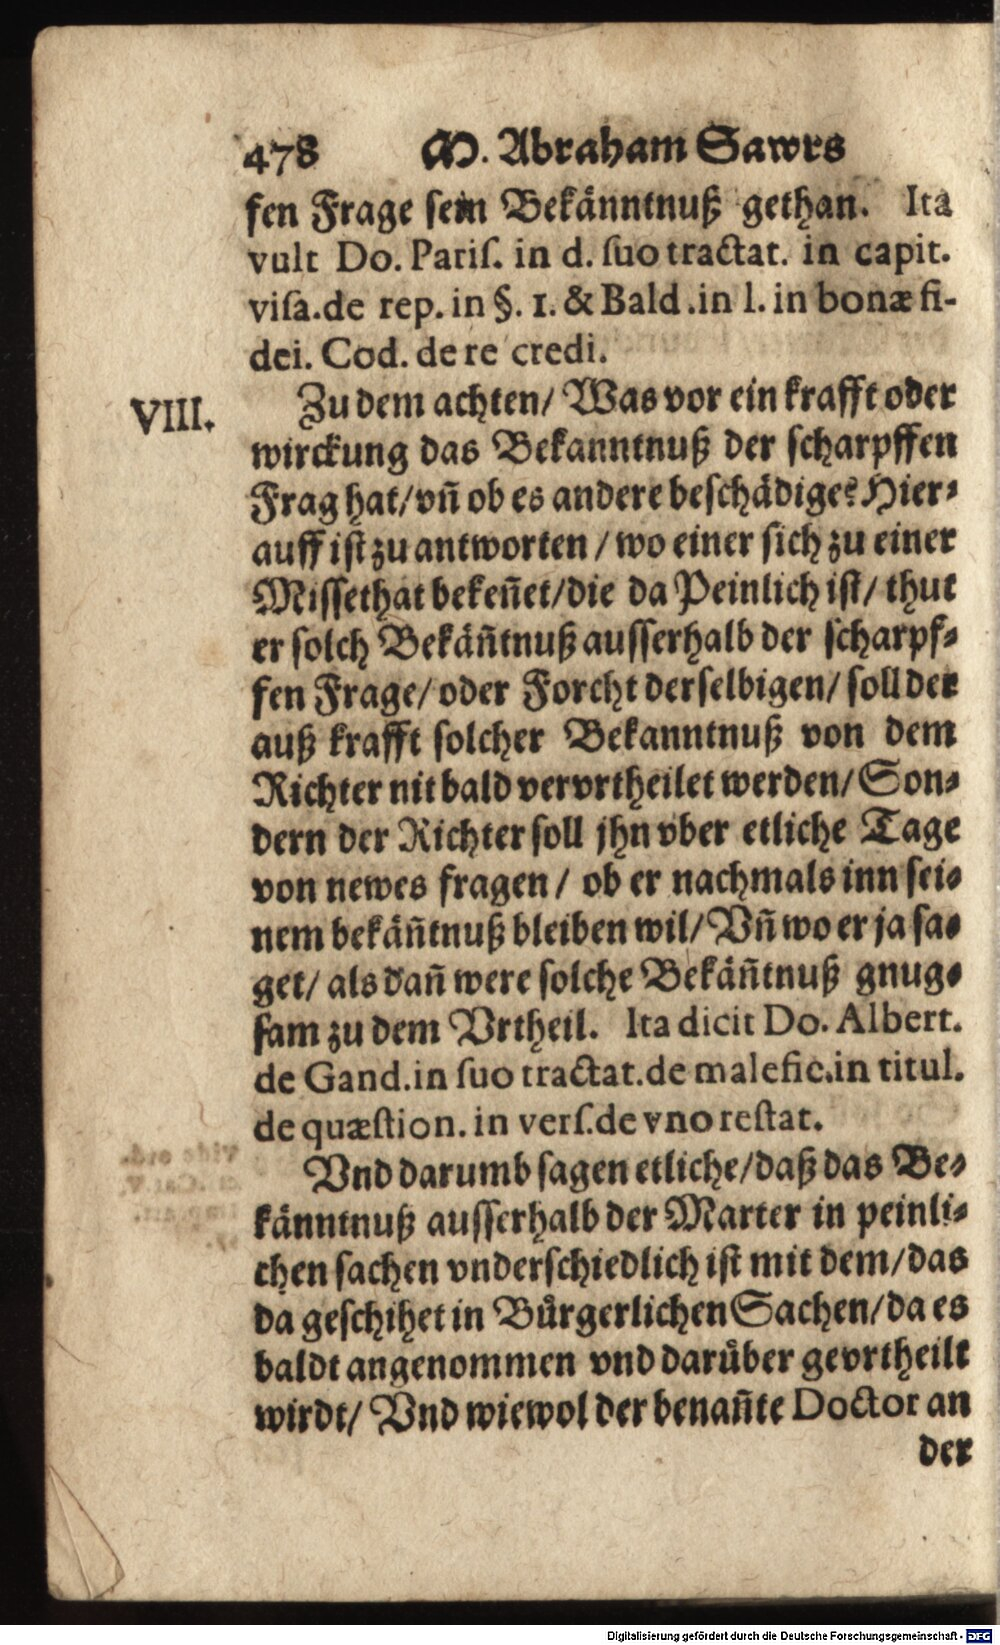 478 M. Abraham Sawrs
fen Frage sein Bekänntnuß gethan. Ita
vult Do. Paris. in d. suo tractat. in capit.
visa. de rep. in §. 1. & Bald. in l. in bonæ fi-
dei. Cod. de re credi.
VIII. Zu dem achten/ Was vor ein krafft oder
wirckung das Bekanntnuß der scharpffen
Frag hat/ vñ ob es andere beschädige? Hier-
auff ist zu antworten / wo einer sich zu einer
Missethat bekeñet/ die da Peinlich ist/ thut
er solch Bekäñtnuß ausserhalb der scharpf-
fen Frage/ oder Forcht derselbigen/ soll der
auß krafft solcher Bekanntnuß von dem
Richter nit bald vervrtheilet werden/ Son-
dern der Richter soll jhn vber etliche Tage
von newes fragen / ob er nachmals inn sei-
nem bekäñtnuß bleiben wil/ Vñ wo er ja sa-
get/ als dañ were solche Bekäñtnuß gnug-
sam zu dem Vrtheil. Ita dicit Do. Albert.
de Gand. in suo tractat. de malefic. in titul.
de quæstion. in vers. de vno restat.
Vnd darumb sagen etliche/ daß das Be-
känntnuß ausserhalb der Marter in peinli-
chen sachen vnderschiedlich ist mit dem/ das
da geschihet in Bürgerlichen Sachen/ da es
baldt angenommen vnd darüber gevrtheilt
wirdt/ Vnd wiewol der benañte Doctor an
der
Digitalisierung gefördert durch die Deutsche Forschungsgemeinschaft - DFG